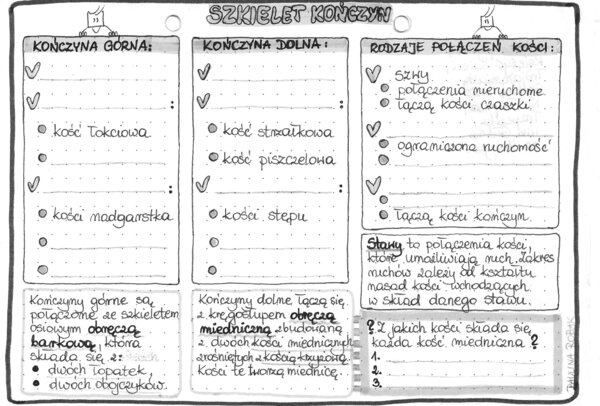 SZKIELET KOŃCZYN
KOŃCZYNA GÓRNA:
:
kość łokciowa
:
kości nadgarstka
Kończyny górne są
połączone ze szkieletem
osiowym obręczą
barkową, która
składa się z:
• dwóch łopatek,
• dwóch obojczyków.
KOŃCZYNA DOLNA:
:
kość strzałkowa
kość piszczelowa
:
kości stępu
Kończyny dolne łączą się
z kręgosłupem obręczą
miedniczną zbudowaną
z dwóch kości miednicznych
zrośniętych z kością krzyżową.
Kości te tworzą miednicę.
RODZAJE POŁĄCZEŃ KOŚCI:
szwy
połączenia nieruchome
łączą kości czaszki
ograniczona ruchomość
łączą kości kończyn
Stawy to połączenia kości,
które umożliwiają ruch. Zakres
ruchów zależy od kształtu
nasad kości wchodzących
w skład danego stawu.
? Z jakich kości składa się
każda kość miedniczna?
1.
2.
3.